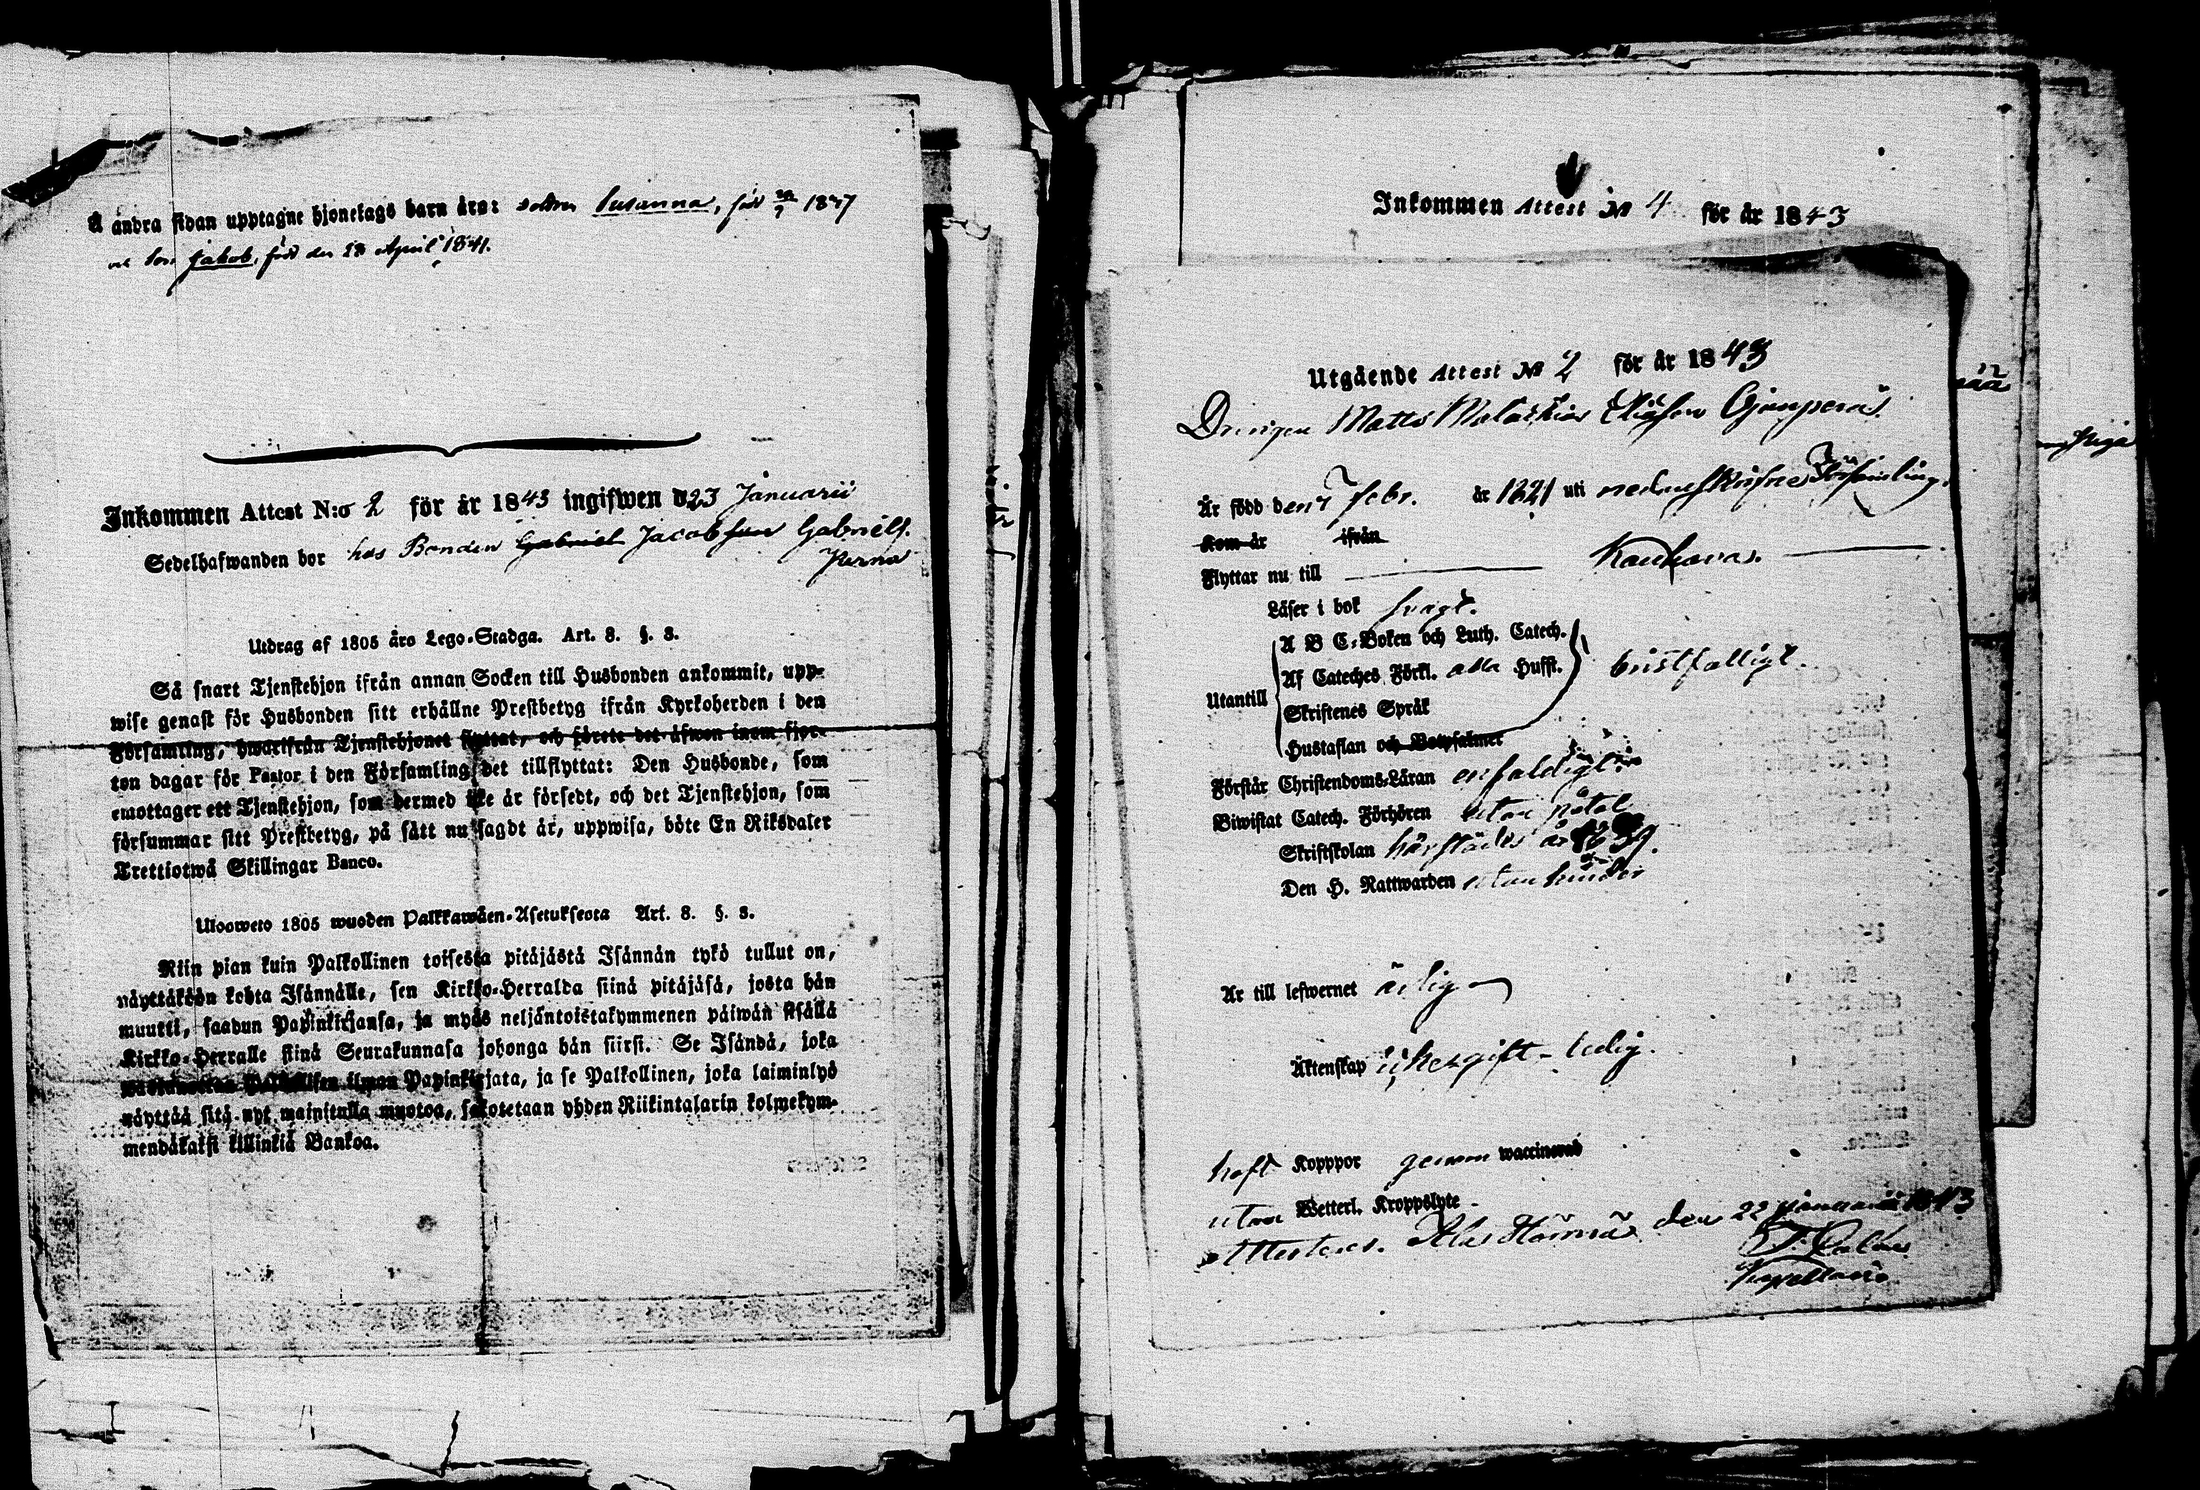 Å andra sidan upptagne hjonelags barn äro: dottren Susanna, född 1837
och son Jakob, född den 18 April 1841.
Inkommen Attest N:o 2 för år 1843 ingifwen d 23 Januarii
Sedelhafwanden bor hos Bonden Gabriel Jacobsson Gabriels.
Perna
Utdrag af 1805 års Lego-Stadga. Art. 8. §. 3.
Så snart Tjenstehjon ifrån annan Socken till Husbonden ankommit, upp-
wise genast för Husbonden sitt erhållne Prestbetyg ifrån Kyrkoherden i den
Församling, hwarifrån Tjenstehjonet flyttat, och förete det äfwen inom fjor-
ton dagar för Pastor i den Församling det tillflyttat: Den Husbonde, som
emottager ett Tjenstehjon, som dermed icke är försedt, och det Tjenstehjon, som
försummar sitt Prestbetyg, på sätt nu sagdt är, uppwisa, böte En Riksdaler
Trettiotwå Skillingar Banco.
Uloswéto 1805 wuoden Palkkawäen-Asetuksesta Art. 8. §. 3.
Niin pian kuin Palkollinen toisesta pitäjästä Isännän tykö tullut on,
näyttäköön kohta Isännälle, sen Kirkko-Herralda siinä pitäjäsä, josta hän
muutti, saadun Papinkirjansa, ja myös neljäntoistakymmenen päiwän sisällä
Kirkko-Herralle siinä Seurakunnasa johonga hän siirsi. Se Isändä, joka
Palkollisen ilman Papinkirjata, ja se Palkollinen, joka laiminlyö
näyttää sitä nyt mainitulla muotoa, sakotetaan yhden Riikintalarin kolmekym-
mendäkaksi killinkiä Bankoa.
Inkommen Attest № 4 för år 1843
Utgående Attest № 2 för år 1843
Drengen Matts Malachias Eliasson
Är född den 7 Febr. år 1821 uti nedanskrifne Församling.
Kom år ifrån
Flyttar nu till Kauhava.
Läser i bok svagt.
A B C-Boken och Luth. Catech.
Utantill Af Cateches Förkl. alla Hufst. bristfälligt.
Skriftenes Språk
Hustaflan och Botpsalmer
Förstår Christendoms-Läran enfaldigt
Biwistat Catech. Förhören utan påtal
Skriftskolan härstädes år 1839.
Den H. Nattwarden utan hinder
Är till lefwernet ärlig
Äktenskap ledig.
haft Kopppor genom waccinerad
utan Wetterl. Kroppslyte
Attesteras. Ala Härmä den 22 Januarii 1843
Kapellan